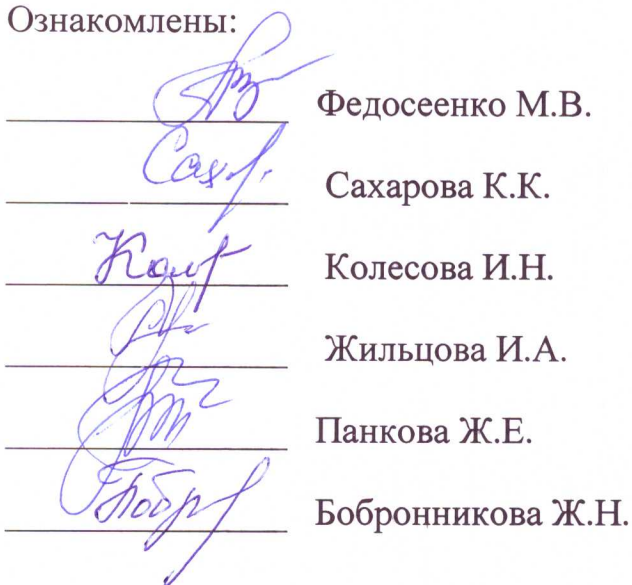 Ознакомлены:
Федосеенко М.В.
Сахарова К.К.
Колесова И.Н.
Жильцова И.А.
Панкова Ж.Е.
Бобронникова Ж.Н.